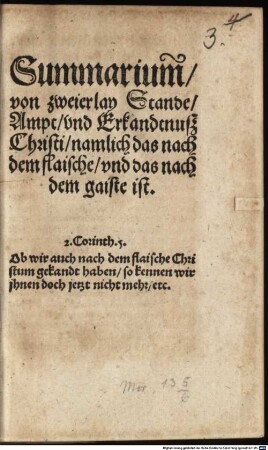 3. 4.
Summarium̃/
von zweierlay Stande/
Ampt/vnd Erkandtnuß
Christi/namlich das nach
dem flaische/vnd das nach
dem gaiste ist.
2. Corinth. 5.
Ob wir auch nach dem flaische Chri
stum gekandt haben/so kennen wir
jhnen doch jetzt nicht mehr/etc.